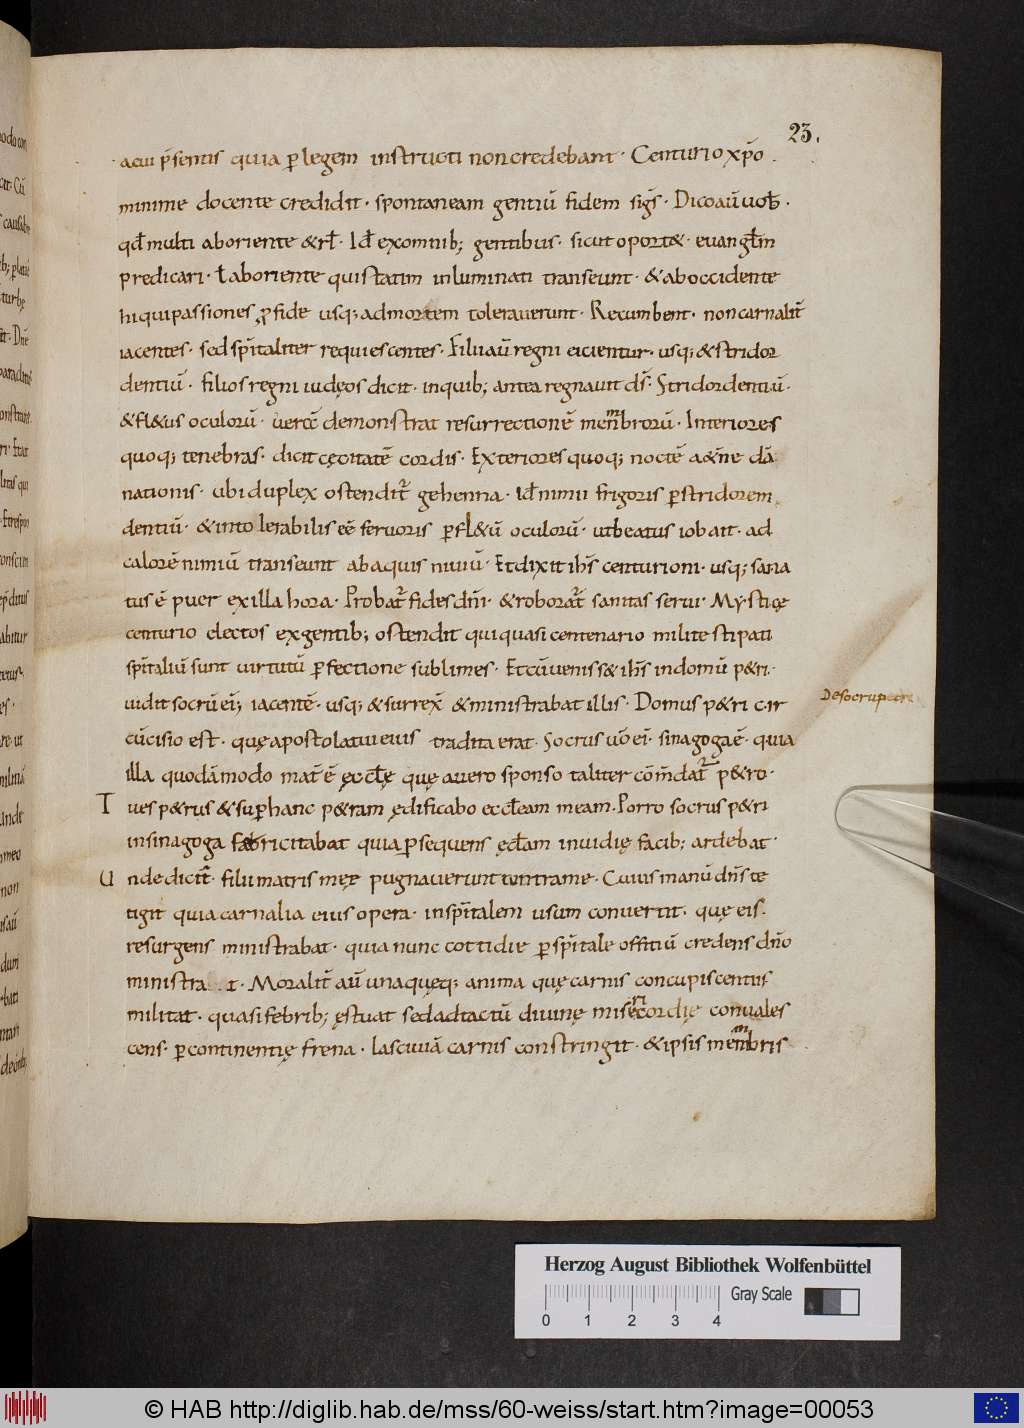 23.
aeui p̄sentis quia p̱ legem instructi non credebant · Centurio xp̄o
minime docente credidit · spontaneam gentiū fidem sigs̄ · Dico aū uob̄ ·
qd̄ multi ab oriente &rł · Id ē ex omnib; gentibus · sicut oport& · euangłm
predicari · ł ab oriente qui statim inluminati transeunt · & ab occidente
hi qui passiones ꝓ fide usq; ad mortem tolerauerunt · Recumbent · non carnalit̄
iacentes · sed sp̄italiter requiescentes · Filii aū regni eicientur · usq; & stridor
dentiū · filios regni iudęos dicit · in quib; antea regnauit ds̄ · Stridor dentiū ·
& fl&us oculorū · demonstrat resurrectionē membrorū · Interiores
quoq; tenebras · dicit cęcitatē cordis · Exteriores quoq; noctē aet̄ne dā
nationis · ubi duplex ostendit̄ gehenna · Id ē nimii frigoris p̱ stridorem
dentiū · & intolerabilis eē feruoris p̱ fl&ū oculorū · ut beatus iob ait · ad
calorē nimiū transeunt ab aquis niuiū · Et dixit ihs̄ centurioni · usq; sana
tus ē puer ex illa hora · Probat̄ fides dn̄i · & roborat̄ sanitas serui · Mysticę
centurio electos ex gentib; ostendit qui quasi centenario milite stipati
sp̄italiū sunt uirtutū p̱fectione sublimes · Et cū ueniss& ihs̄ in domū p&ri ·
uidit socrū ei; iacentē · usq; & surrex̄ & ministrabat illis · Domus p&ri cir
De socru petri
cūcisio est · quę apostolatui eius tradita erat · Socrus ūo ei; sinagoga ē · quia
illa quodāmodo mat̄ ē ęcclę quę a uero sponso taliter cōm̄dat̄ p&ro ·
Tu es p&rus & sup̱ hanc p&ram ędificabo eccłeam meam · Porro socrus p&ri
in sinagoga febricitabat quia p̱sequens ęcłam inuidię facib; ardebat ·
Unde dicit̄ · filii matris męę pugnauerunt contra me · Cuius manū dn̄s te
tigit quia carnalia eius opera · in sp̄italem usum conuertit · quę eis ·
resurgens ministrabat · quia nunc cottidie p̱ sp̄itale offitiū credens dn̄o
ministra t · Moralit̄ aū unaquęq; anima quę carnis concupiscentiis
militat · quasi febrib; ęstuat sed ad tactū diuinę misericordię conuales
cens · p̱ continentię frena · lasciuiā carnis constringit · & ipsis membris
Herzog August Bibliothek Wolfenbüttel
Gray Scale
0 1 2 3 4
© HAB http://diglib.hab.de/mss/60-weiss/start.htm?image=00053